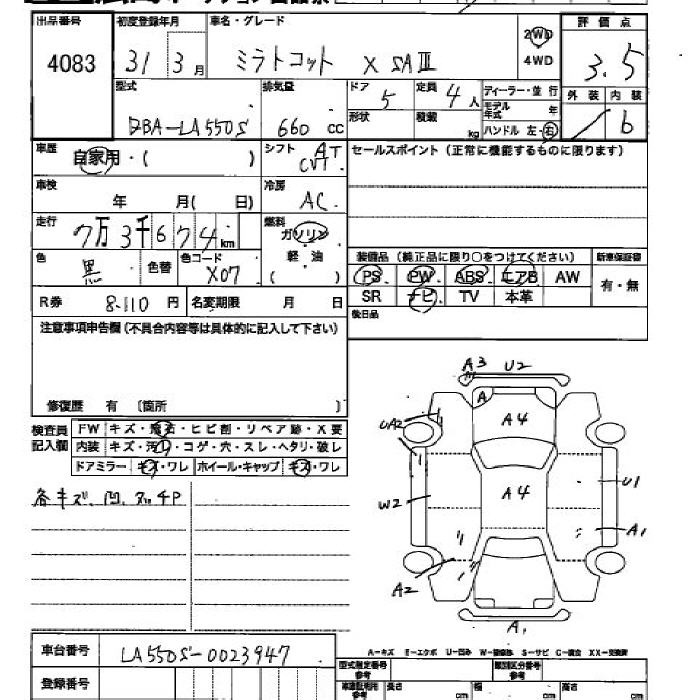 出品番号 初度登録年月 車名・グレード 評価点
4083 31 3月 ミラトコット X SAⅢ 2WD 4WD 3.5
型式 排気量 ドア 5 定員 4人 ディーラー・並行 外装 内装
DBA-LA550S 660 CC 形状 積載 kg モデル年式 年 ハンドル 左・右 6
車歴 自家用・( ) シフト AT CVT セールスポイント(正常に機能するものに限ります)
車検 年 月( 日) 冷房 AC
走行 7万3千674km 燃料 ガソリン 軽油 ( )
色 黒 色替 色コード X07
装備品(純正品に限り○をつけてください) 新車保証書
PS PW ABS エアB AW 有・無
SR ナビ TV 本革
R券 8.110 円 名変期限 月 日
後日品
注意事項申告欄(不具合内容等は具体的に記入して下さい)
修復歴 有 〔箇所 〕
検査員記入欄 FW キズ・飛石・ヒビ割・リペア跡・X要
内装 キズ・汚れ・コゲ・穴・スレ・ヘタリ・破レ
ドアミラー キズ・ワレ ホイール・キャップ キズ・ワレ
各キズ、凹、
A3 U2
A
A4
UA2
A4
U1
W2
A1
A2
A1
A-キズ E-エクボ U-凹み W-補修跡 S-サビ C-腐食 XX-交換済
車台番号 LA550S-0023947
型式指定番号 参考 類別区分番号 参考
登録番号
長さ cm 幅 cm 高さ cm